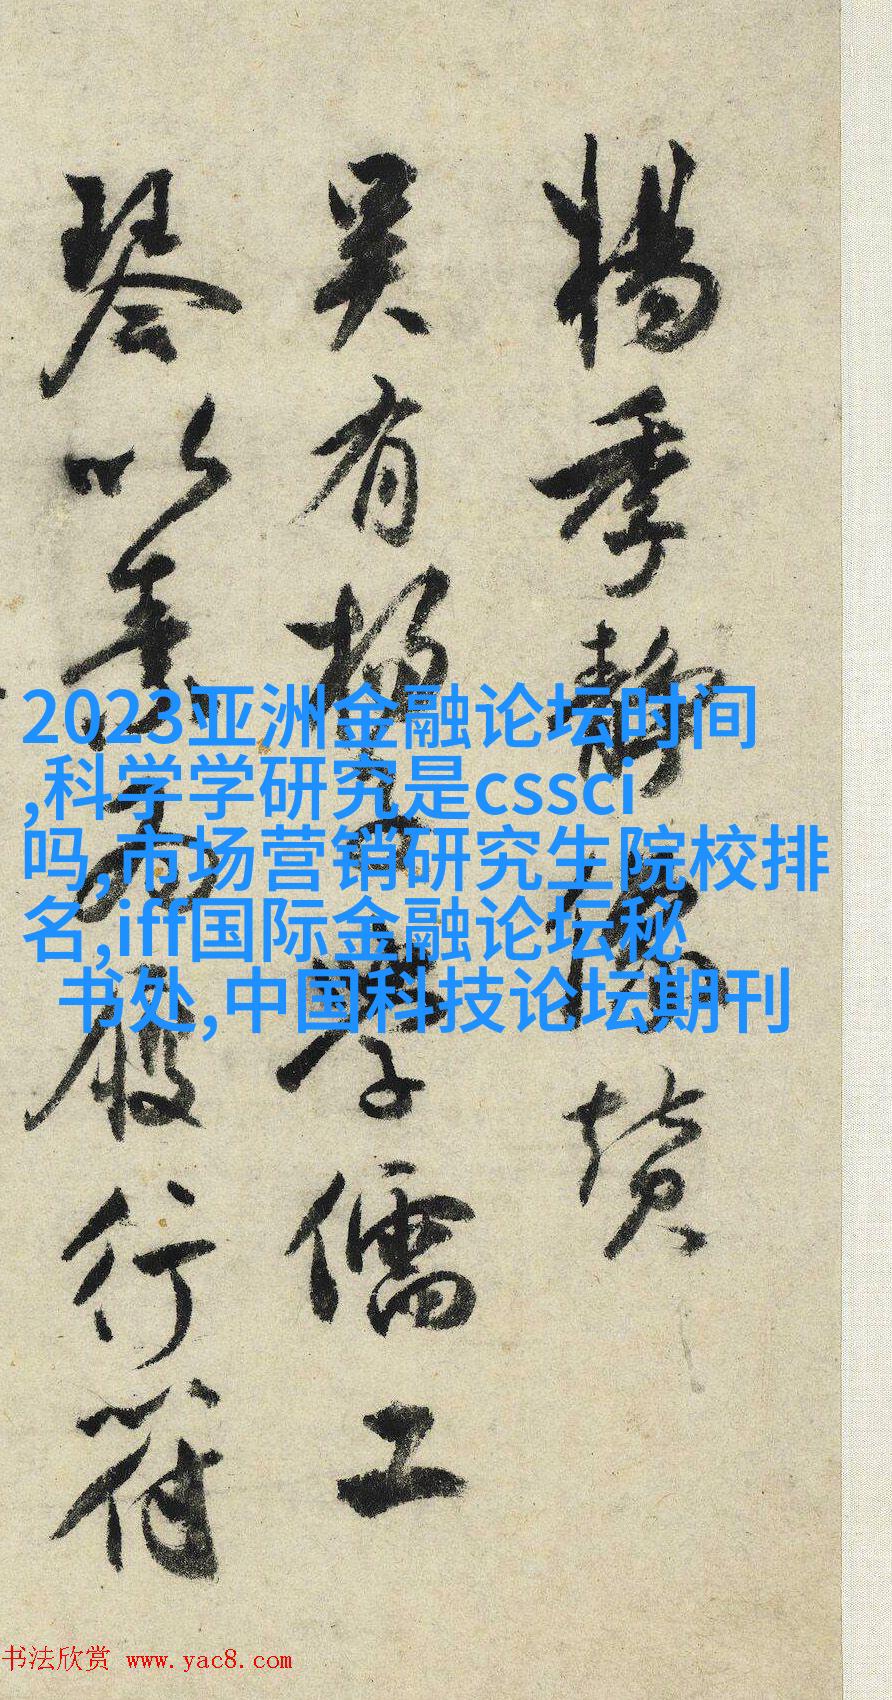 楊季靜像贊
吴有楊子學儒工
琴以善為履行符
2023亚洲金融论坛时间
,科学学研究是cssci
吗,市场营销研究生院校排
名,iff国际金融论坛秘
书处,中国科技论坛期刊
书法欣赏 www.yac8.com